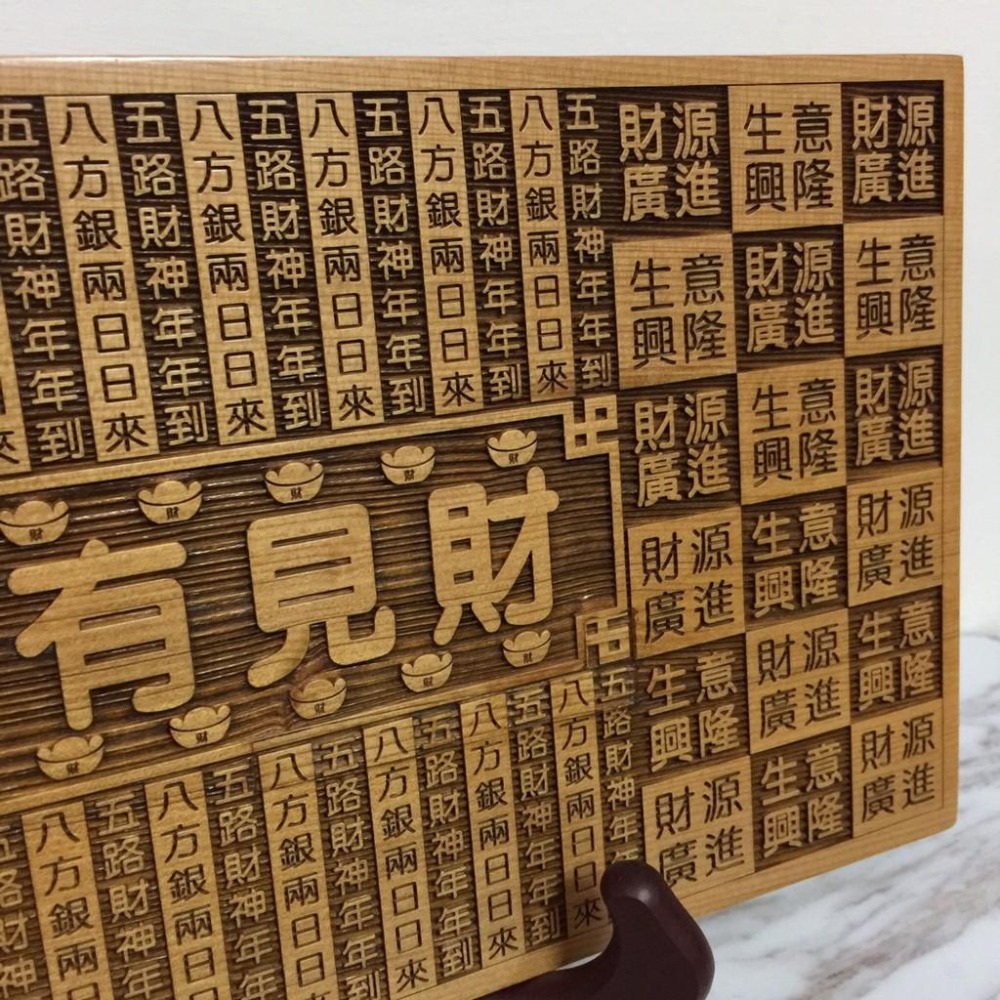 五路財神年年到
八方銀兩日日來
五路財神年年到
八方銀兩日日來
五路財神年年到
八方銀兩日日來
五路財神年年到
八方銀兩日日來
五路財神年年到
八方銀兩日日來
五路財神年年到
財 財 財 財 財
有見財
財 財 財 財 財
五路財神
八方銀兩
五路財神年
八方銀兩日
五路財神年年
八方銀兩日
五路財神年年
八方銀兩日日來
五路財神年年到
八方銀兩日日來
五路財神年年到
八方銀兩日日來
五路財神年
財源 生意 財源
廣進 興隆 廣進
生意 財源 生意
興隆 廣進 興隆
財源 生意 財源
廣進 興隆 廣進
財源 生意 財源
廣進 興隆 廣進
生意 財源 生意
興隆 廣進 興隆
財源 生意 財源
廣進 興隆 廣進